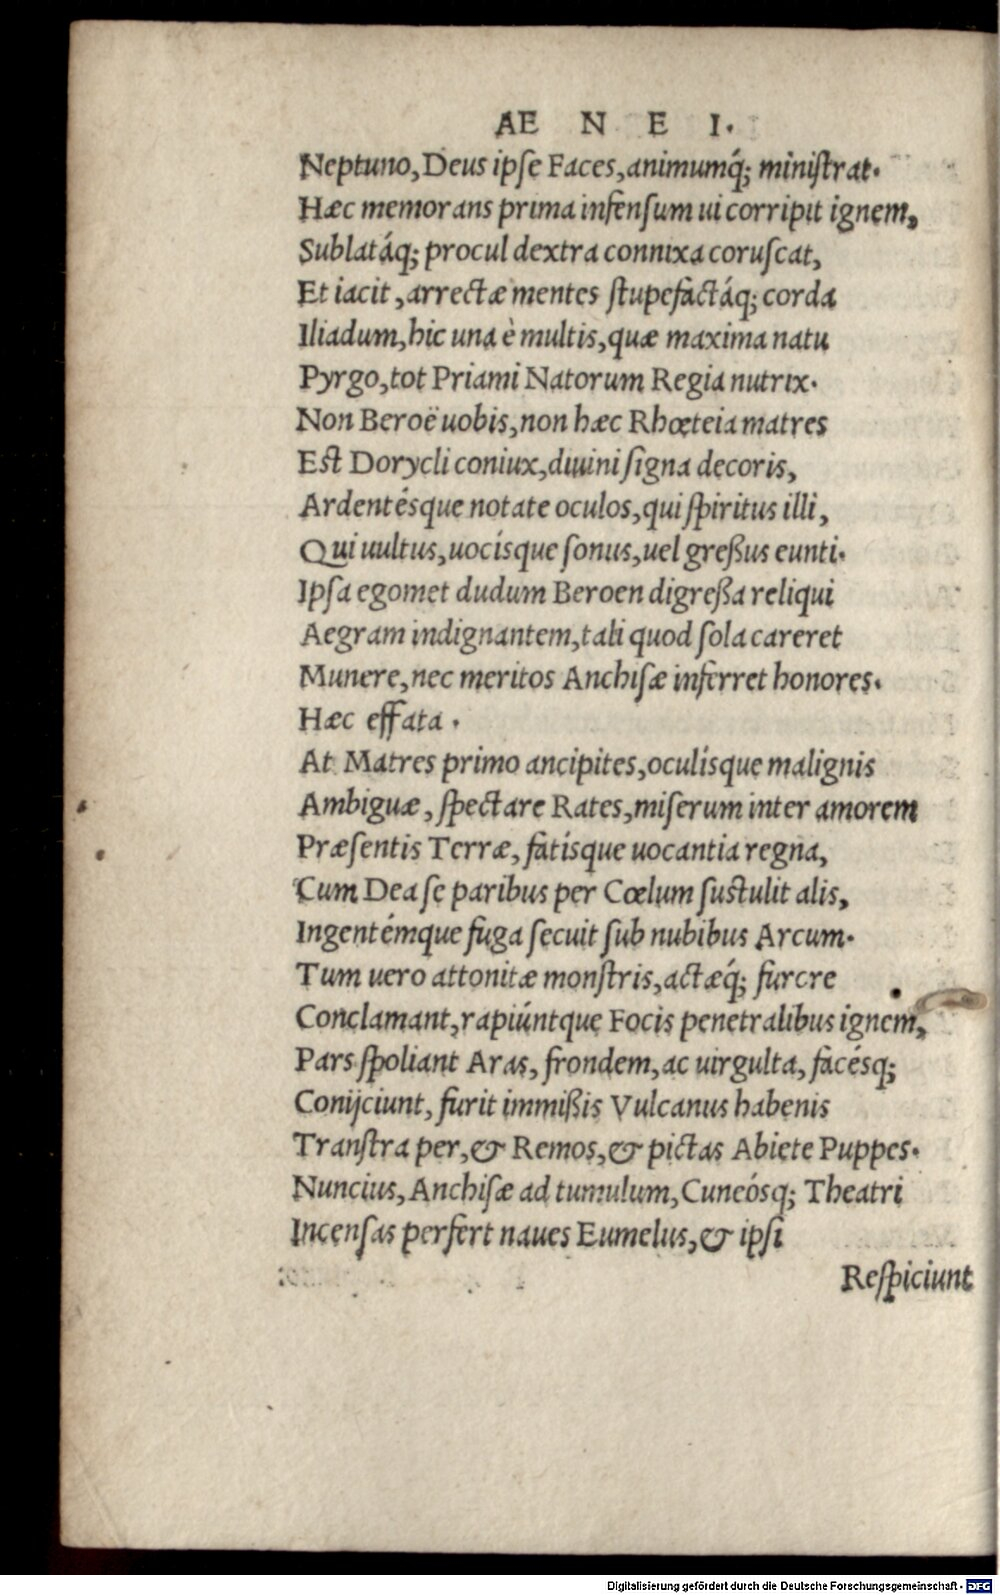 AE N E I.
Neptuno, Deus ipſe Faces, animumq́; miniſtrat.
Hæc memorans prima infenſum ui corripit ignem,
Sublatáq; procul dextra connixa coruſcat,
Et iacit, arrectæ mentes ſtupefactáq; corda
Iliadum, hic una è multis, quæ maxima natu
Pyrgo, tot Priami Natorum Regia nutrix.
Non Beroë uobis, non hæc Rhœteia matres
Eſt Dorycli coniux, diuini ſigna decoris,
Ardentésque notate oculos, qui ſpiritus illi,
Qui uultus, uocisque ſonus, uel greßus eunti.
Ipſa egomet dudum Beroen digreßa reliqui
Aegram indignantem, tali quod ſola careret
Munere, nec meritos Anchiſæ inferret honores.
Hæc effata.
At Matres primo ancipites, oculísque malignis
Ambiguæ, ſpectare Rates, miſerum inter amorem
Præſentis Terræ, fatísque uocantia regna,
Cum Dea ſe paribus per Cœlum ſuſtulit alis,
Ingentémque fuga ſecuit ſub nubibus Arcum.
Tum uero attonitæ monſtris, actæq́; furcre
Conclamant, rapiúntque Focis penetralibus ignem,
Pars ſpoliant Aras, frondem, ac uirgulta, facésq;
Conijciunt, furit immißis Vulcanus habenis
Tranſtra per, & Remos, & pictas Abiete Puppes.
Nuncius, Anchiſæ ad tumulum, Cuneósq; Theatri
Incenſas perfert naues Eumelus, & ipſi
Reſpiciunt
Digitalisierung gefördert durch die Deutsche Forschungsgemeinschaft - DFG